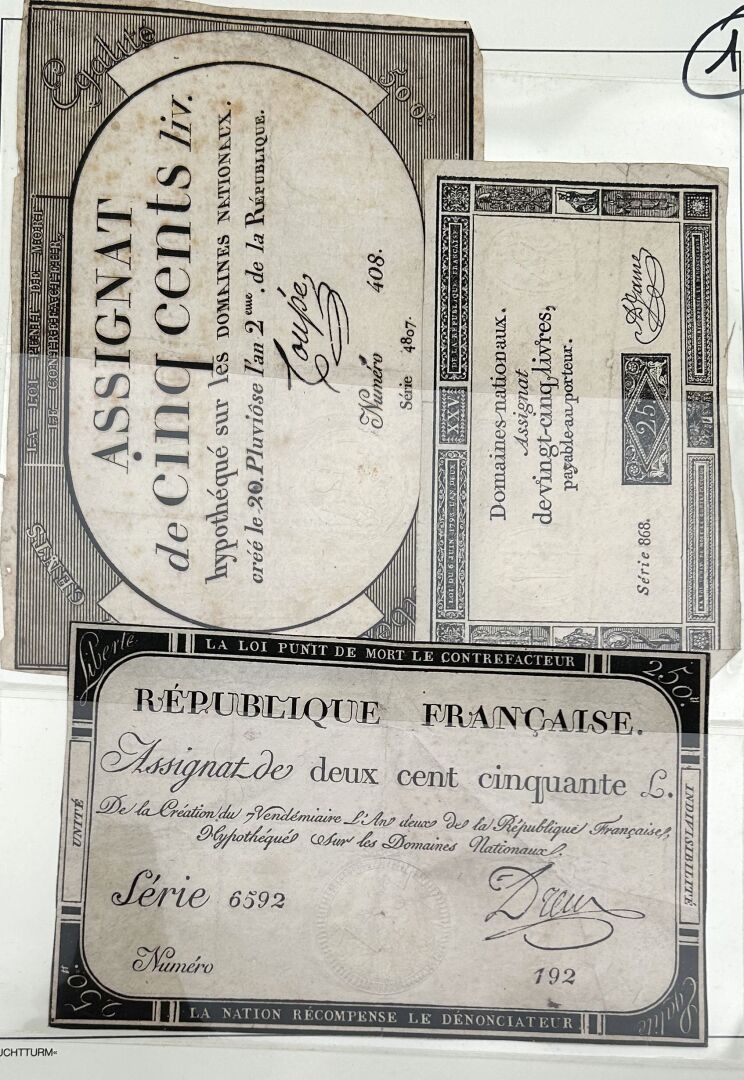 1
Egalité
500#
ASSIGNAT
de cinq cents liv.
hypothéqué sur les DOMAINES NATIONAUX.
créé le 20. Pluviôse l'an 2eme. de la République.
Toupé
Numéro 408.
Série 4807.
LA LOI PUNIT DE MORT
LE CONTREFACTEUR
CENTS
DE LA REPUBLIQUE FRANÇAISE
XXV
LOI DU 6 JUIN 1793. L'AN DEUX
Domaines nationaux.
Assignat
de vingt-cinq livres,
payable au porteur.
25
Série 868.
A Jame
Liberté
LA LOI PUNIT DE MORT LE CONTREFACTEUR
250#
RÉPUBLIQUE FRANÇAISE.
Assignat de deux cent cinquante L.
De la Création du 7 Vendémiaire L'An deux de la République Française,
Hypothéqué Sur les Domaines Nationaux.
UNITÉ
INDIVISIBILITÉ
Série 6592
Dreux
Numéro 192
250#
LA NATION RÉCOMPENSE LE DÉNONCIATEUR
Egalité
UCHTTURM